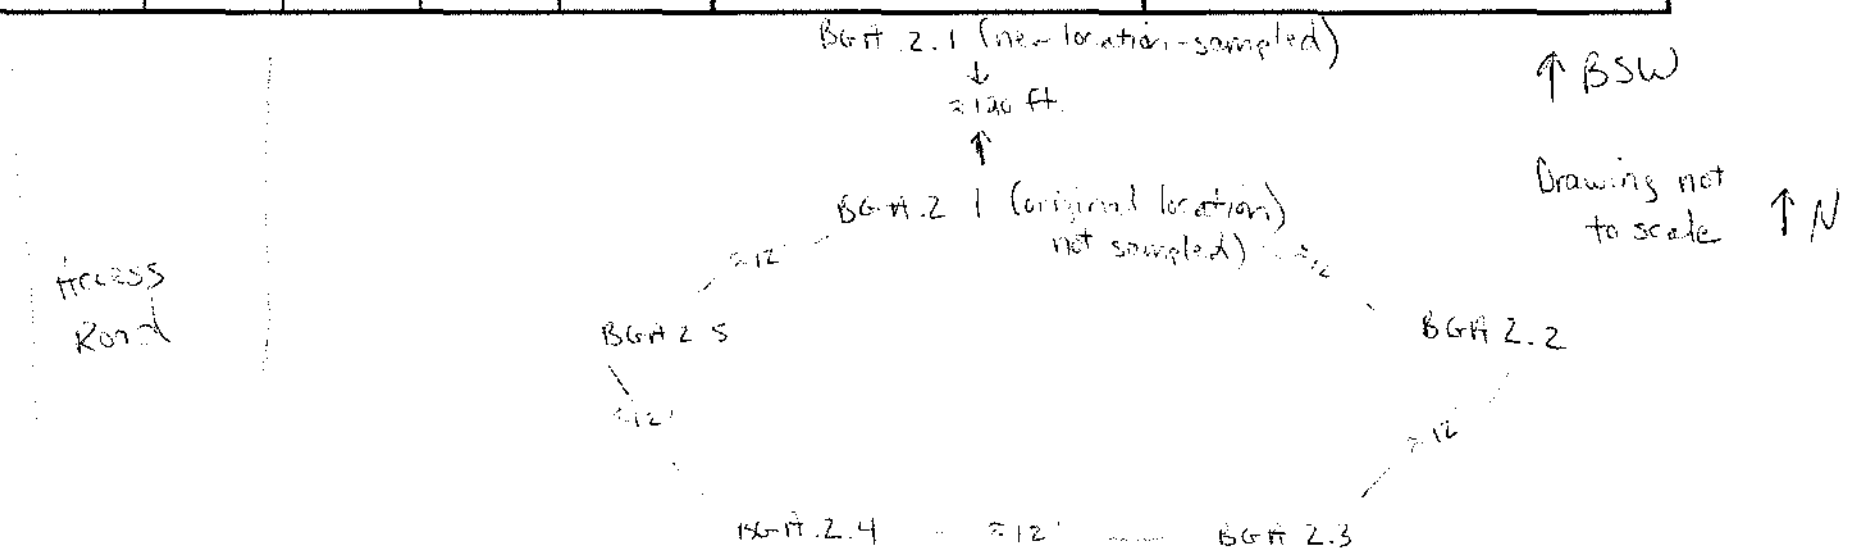 BGA.2.1 (new location-sampled)
↓
≈120 ft.
↑
↑ BSW
Drawing not
to scale
↑ N
BGA.2 1 (original location)
not sampled)
≈12
≈12
Access
Road
BGA 2 5
BGA 2.2
≈12'
≈12
BGA.2.4 - ≈12' — BGA 2.3